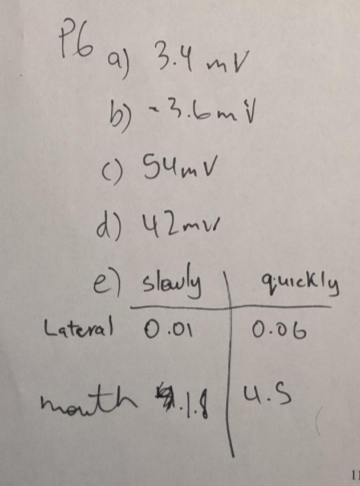 P6 a) 3.4 mV
b) -3.6 mV
c) 54mV
d) 42mV
e) slowly quickly
Lateral 0.01 0.06
mouth 1.8 4.5
11